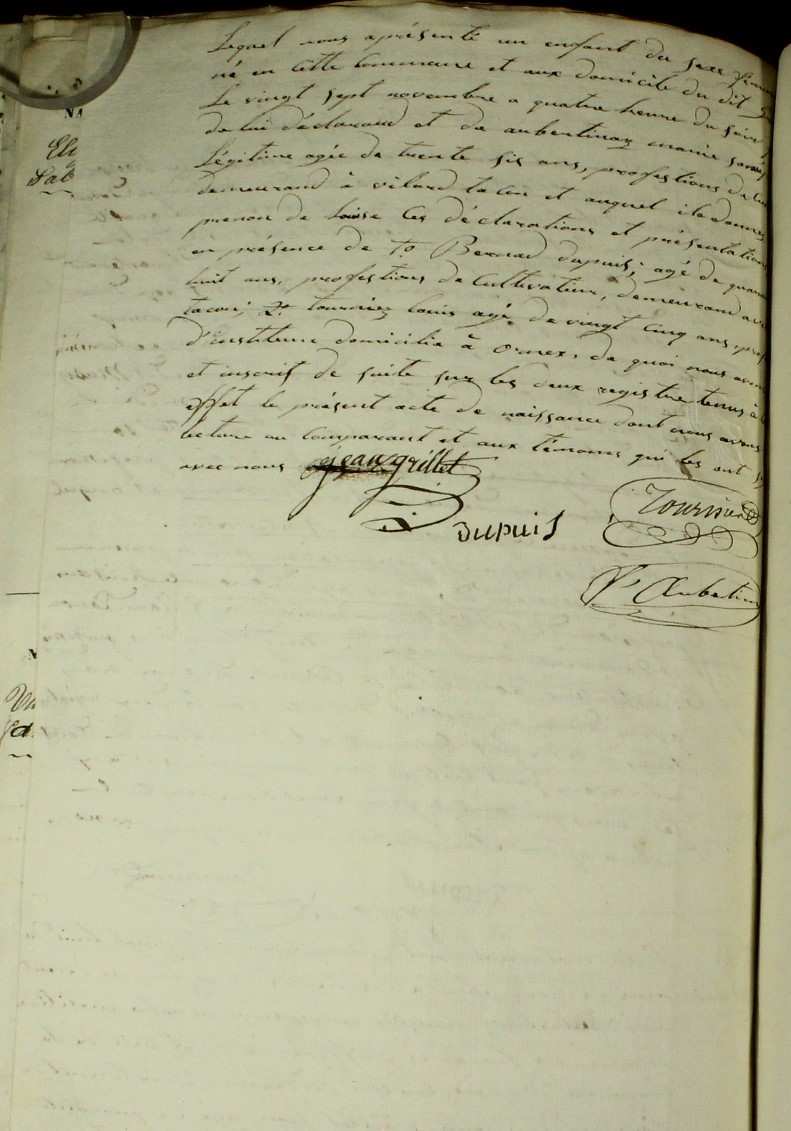 Lequel nous a présenté un enfant du sexe
né en cette Commune et aux domicile du dit
Le vingt sept novembre a quatre heure du soir
de lui déclarand et de aubertin marie
Légitime agée de trente six ans, profestions de
demeurand à vilard tacon et auquel
prenon de Loise Ces déclarations et présentations
en présence de 1o. Bernad dupuis, agé de
huit ans, profestions de Cultivateur, demeurand
tacon; 2o. tournier Louis agé de vingt cinq ans, prof
d'instituteur domicilié à Ornex, de quoi nous avon
et inscrit de suite sur les deux registre tenus à
effet le présent acte de naissance dont nous avons
lecture au Comparant et aux témoins qui les ont
avec nous
jean grillet
Tournier
DUPUIS
Aubertin